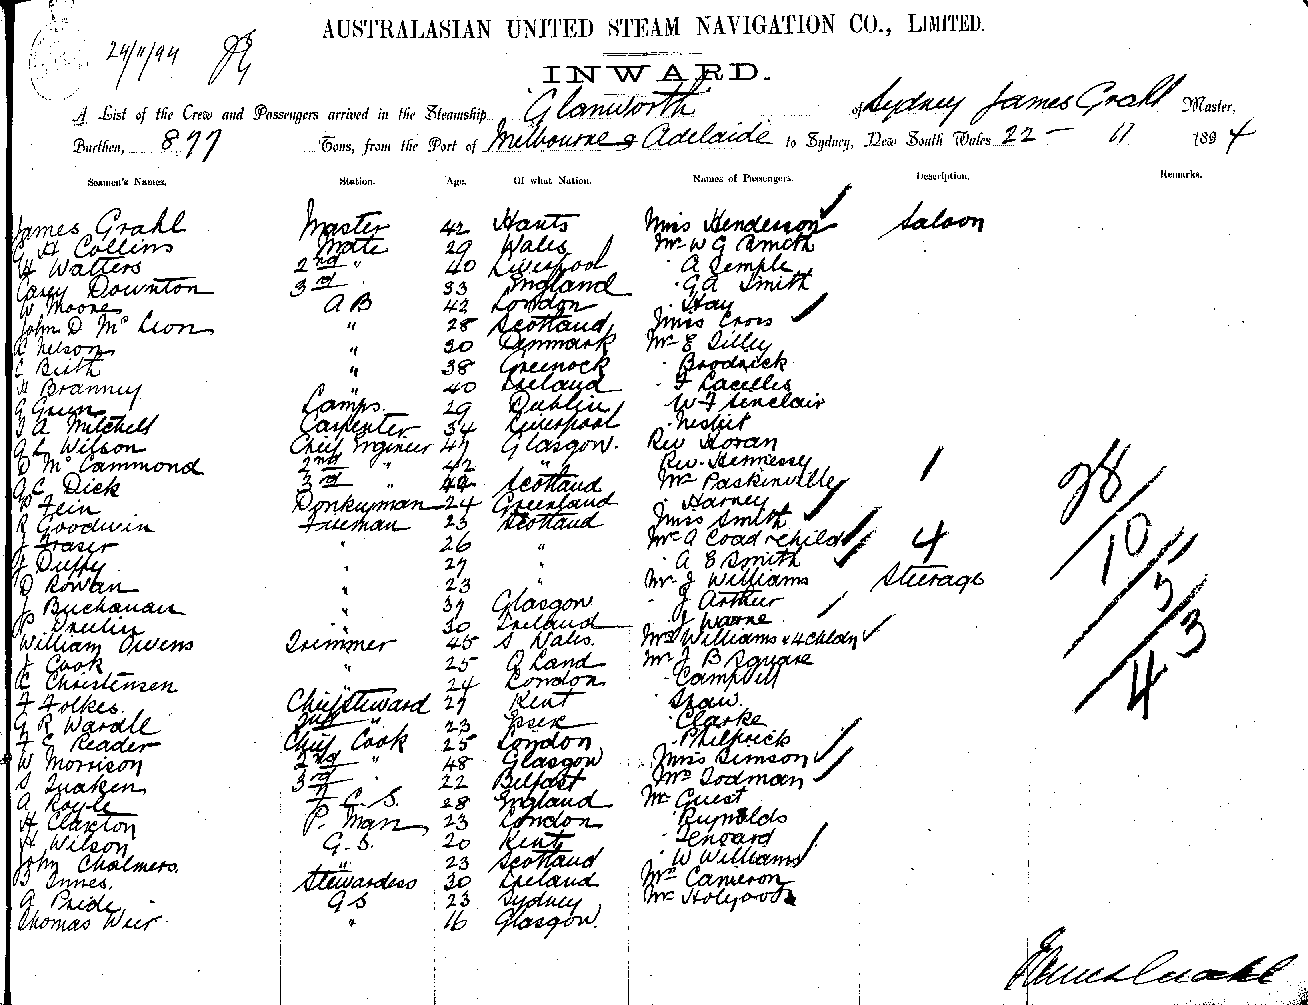 AUSTRALASIAN UNITED STEAM NAVIGATION CO., LIMITED.
24/11/94
INWARD.
A List of the Crew and Passengers arrived in the Steamship Glanworth of Sydney James Grahl Master,
Burthen, 897 Tons, from the Port of Melbourne & Adelaide to Sydney, New South Wales 22 - 11 1894
Seamen's Names. Station. Age. Of what Nation. Names of Passengers. Description. Remarks.
James Grahl Master 42 Hants Miss Henderson Saloon
H Collins Mate 29 Wales Mr W G Smith
H Watters 2nd " 40 Liverpool A Temple
Carey Downton 3rd 33 England G A Smith
W Moore A B 42 London Hay
John D Mc Leon " 28 Scotland Miss Cross
Nelson " 30 Denmark Mr E Tilley
Beith " 38 Greenock Brodrick
Branney " 40 Ireland F Lacelles
G Green Lamps 29 Dublin W F Sinclair
A Mitchell Carpenter 34 Liverpool Nesbit
Wilson Chief Engineer 47 Glasgow. Rev Horan
D McCammond 2nd " 42 " Rev. Hennessy
C Dick 3rd " 44 Scotland Mr Paskinville 1
Fein Donkeyman 24 Greenland Harney
R Goodwin Fireman 23 Scotland Miss Smith
J Fraser " 26 " Mr A Coad & child 4
J Duffy " 27 A E Smith
D Rowan " 23 " Mr J Williams Steerage
J Buchanan " 37 Glasgow J Arthur
P Devlin " 30 Ireland J Warne
William Owens Trimmer 45 S Wales. Mrs Williams & 4 Chldn
J Cook " 25 Land Mr J B Square
Christensen " 24 London Campbell
F Folkes. Chief Steward 27 Kent Shaw.
G R Wardle 2nd " 23 Essex Clarke
F E Reader Chief Cook 25 London Philprick
W Morrison 2nd " 48 Glasgow Miss Simson
S Quaken 3rd " 22 Belfast Mrs Todman
A Royle F. C. S. 28 England Mr Guest
H Claxton P. Man 23 London Reynolds
H Wilson G. S. 20 Kent
John Chalmers. " 23 Scotland W Williams
B Innes. Stewardess 30 Ireland Mr Cameron
A Pride G S 23 Sydney Mr
Thomas Weir " 16 Glasgow.
28
10
5
3
4
James Grahl